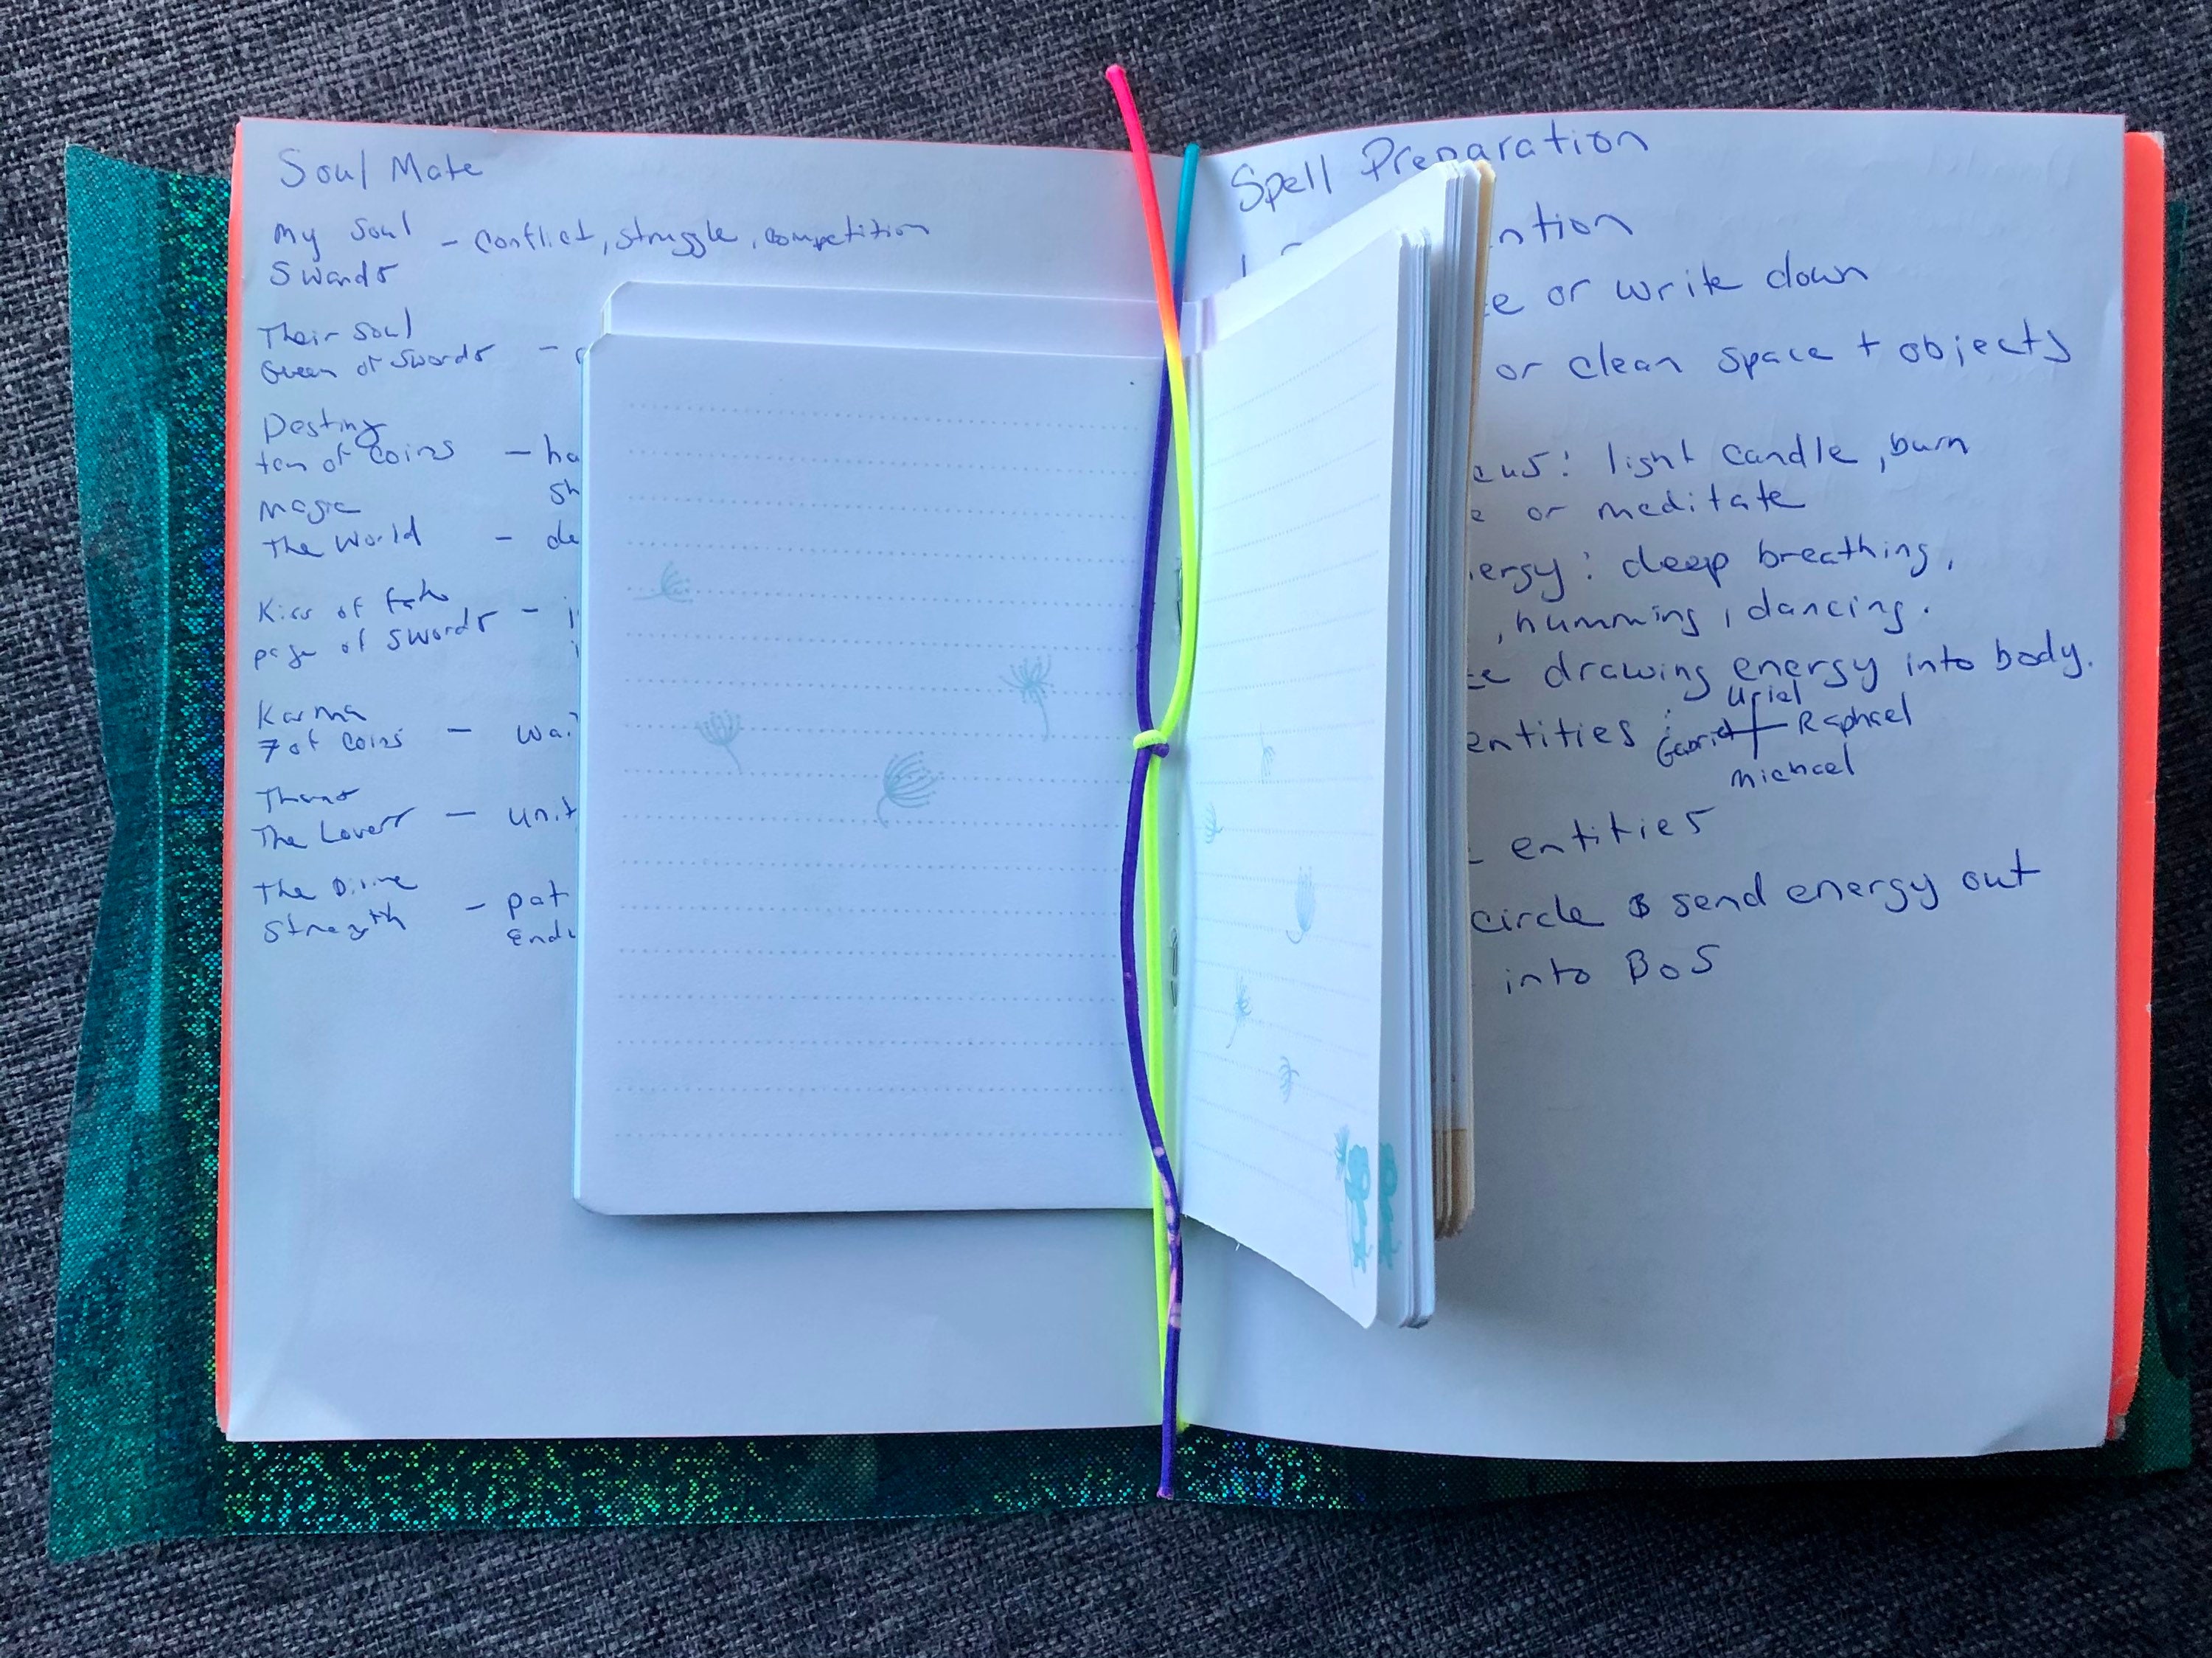 Soul Mate
My Soul - conflict, struggle, competition
Swords
Their Soul
Queen of Swords -
Destiny
ten of Coins - ha
sh
Magic
The World - de
Kiss of fate
page of Swords -
Karma
7 of Coins - wa
The Lovers - unit
The Divine
Strength - pat
Endu
Spell Preparation
ntion
e or write down
or clean space + objects
cus: light candle, burn
e or meditate
ergy: deep breathing,
, humming, dancing.
ze drawing energy into body.
Uriel
entities : Gabriel Raphael
Michael
entities
circle & send energy out
into BoS